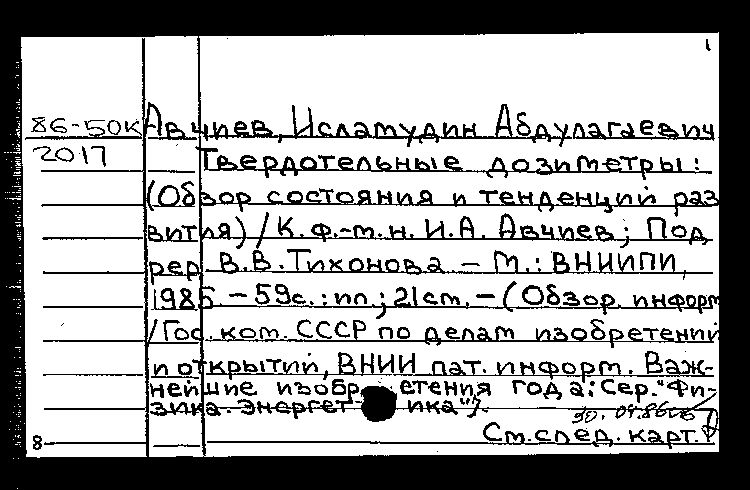 1
86-50к Авчиев, Исламудин Абдулагаевич
2017 Твердотельные дозиметры:
(Обзор состояния и тенденций раз
вития) / К. ф.-м. н. И.А. Авчиев; Под
ред. В.В. Тихонова – М.: ВНИИПИ,
1985. – 59с.: ил.; 21см. – (Обзор. информ
/Гос. ком. СССР по делам изобретений
и открытий, ВНИИ пат. информ. Важ-
нейшие изобретения года: Сер. "Фи-
зика. Энергетика").
30. 04.86
См. след. карт.
8